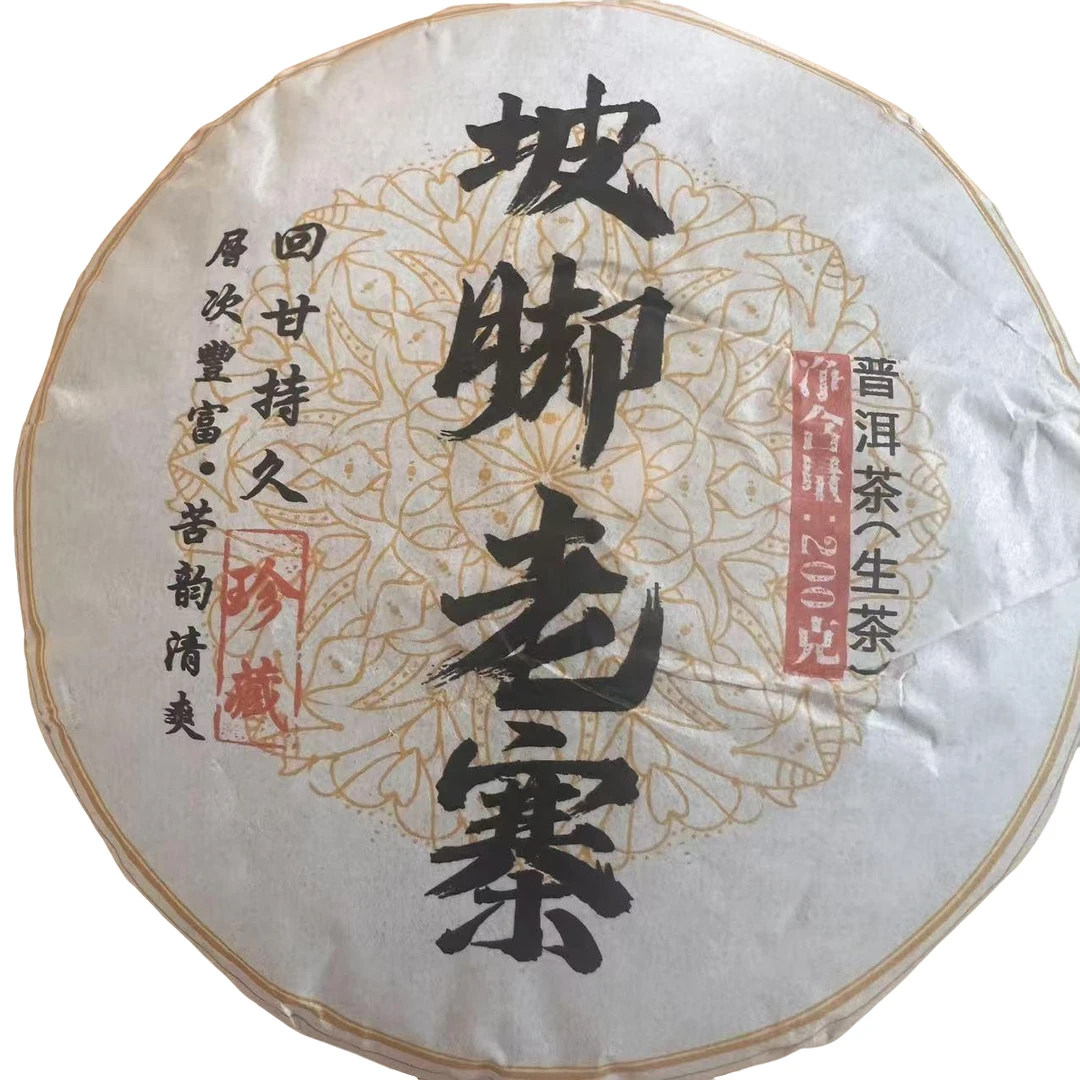 普洱茶(生茶)
净含量:200克
坡脚老寨
回甘持久
層次豐富·苦韵清爽
珍藏